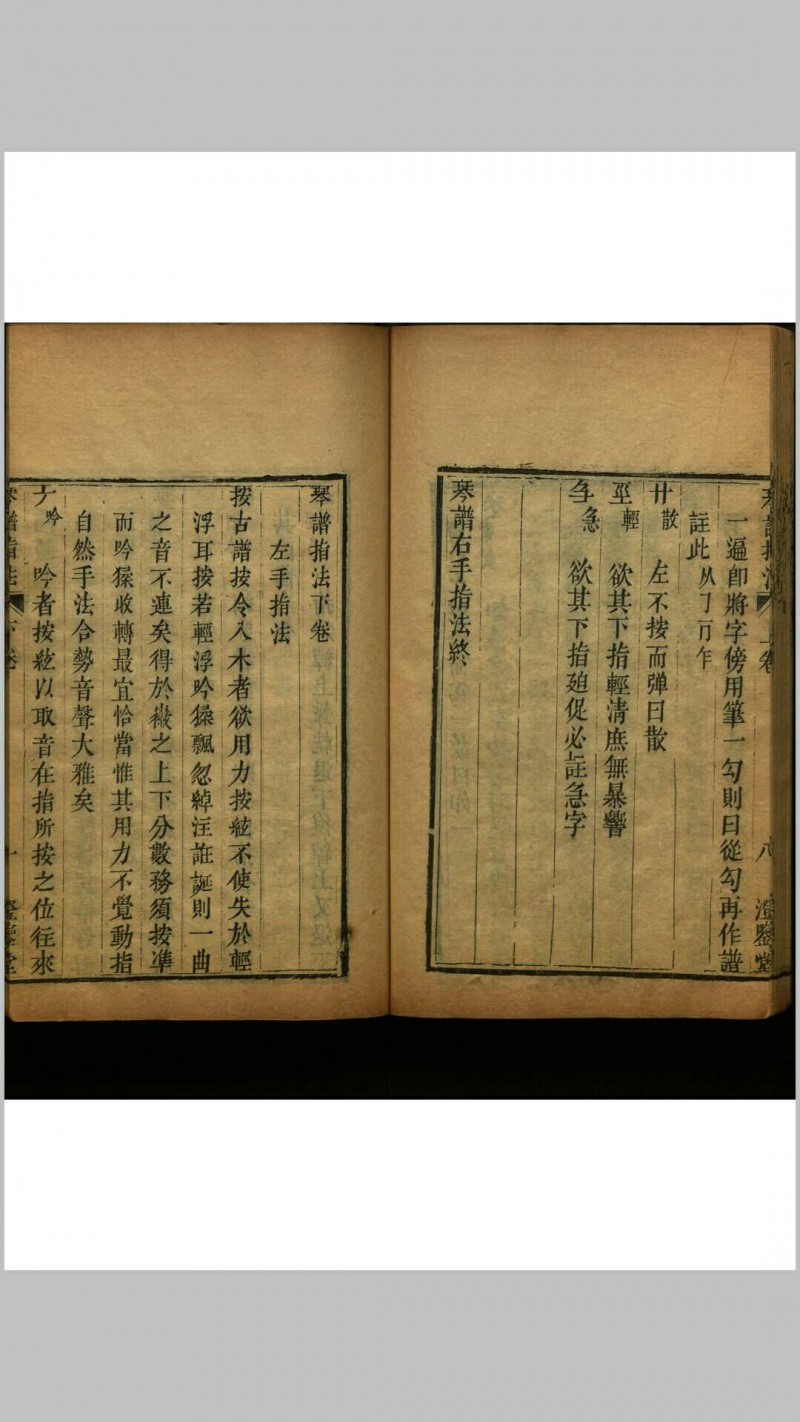 琴譜指法 上卷 八 澄鑒堂
一遍卽將字傍用筆一勾則曰從勾再作譜
註此从
廾散 左不按而弹曰散
𦤶輕 欲其下指輕清庶無暴響
急 欲其下指廹促必註急字
琴譜右手指法終
琴譜指法下卷
左手指法
按古譜按令入木者欲用力按絃不使失於輕
浮耳按若輕浮吟猱飄忽綽注誑誕則一曲
之音不連矣得於徽之上下分數務須按準
而吟猱收轉最宜恰當惟其用力不覺動指
自然手法合勢音聲大雅矣
吟 吟者按絃以取音在指所按之位往來
琴譜指法 下卷 十 澄鑒堂